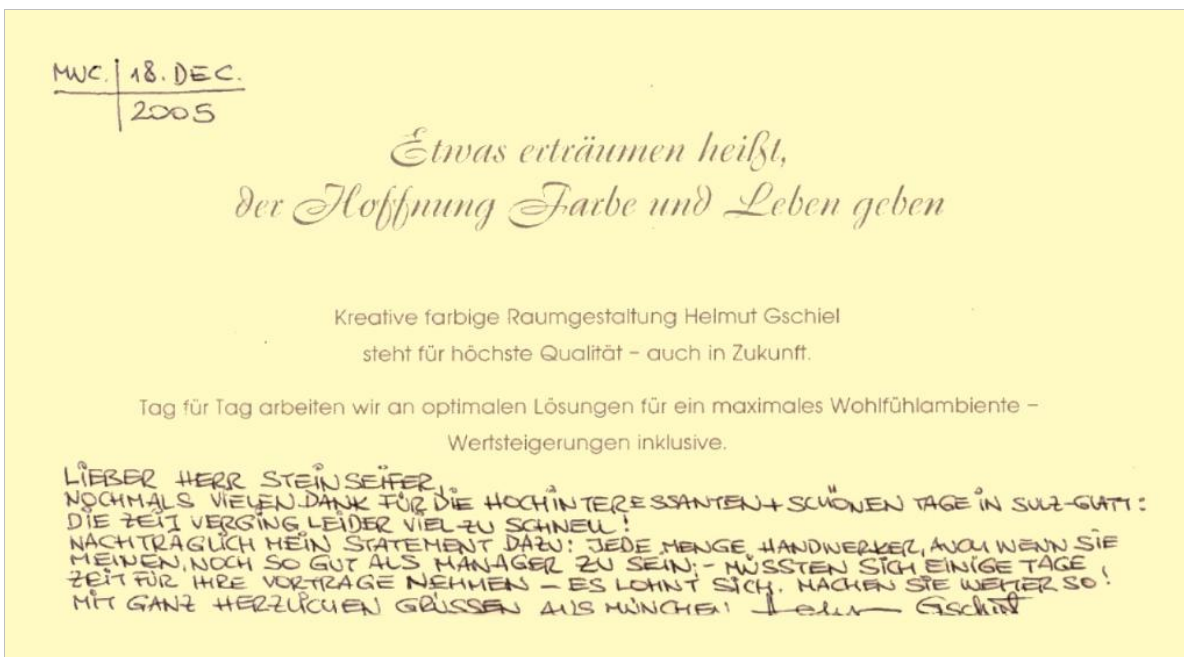 MUC. 18. DEC.
2005
Etwas erträumen heißt,
der Hoffnung Farbe und Leben geben
Kreative farbige Raumgestaltung Helmut Gschiel
steht für höchste Qualität – auch in Zukunft.
Tag für Tag arbeiten wir an optimalen Lösungen für ein maximales Wohlfühlambiente –
Wertsteigerungen inklusive.
LIEBER HERR STEINSEIFER,
NOCHMALS VIELEN DANK FÜR DIE HOCHINTERESSANTEN + SCHÖNEN TAGE IN SULZ-GLATT:
DIE ZEIT VERGING LEIDER VIEL ZU SCHNELL!
NACHTRÄGLICH MEIN STATEMENT DAZU: JEDE MENGE HANDWERKER, AUCH WENN SIE
MEINEN, NOCH SO GUT ALS MANAGER ZU SEIN; - MÜSSTEN SICH EINIGE TAGE
ZEIT FÜR IHRE VORTRÄGE NEHMEN – ES LOHNT SICH. MACHEN SIE WEITER SO!
MIT GANZ HERZLICHEN GRÜSSEN AUS MÜNCHEN! Gschiel